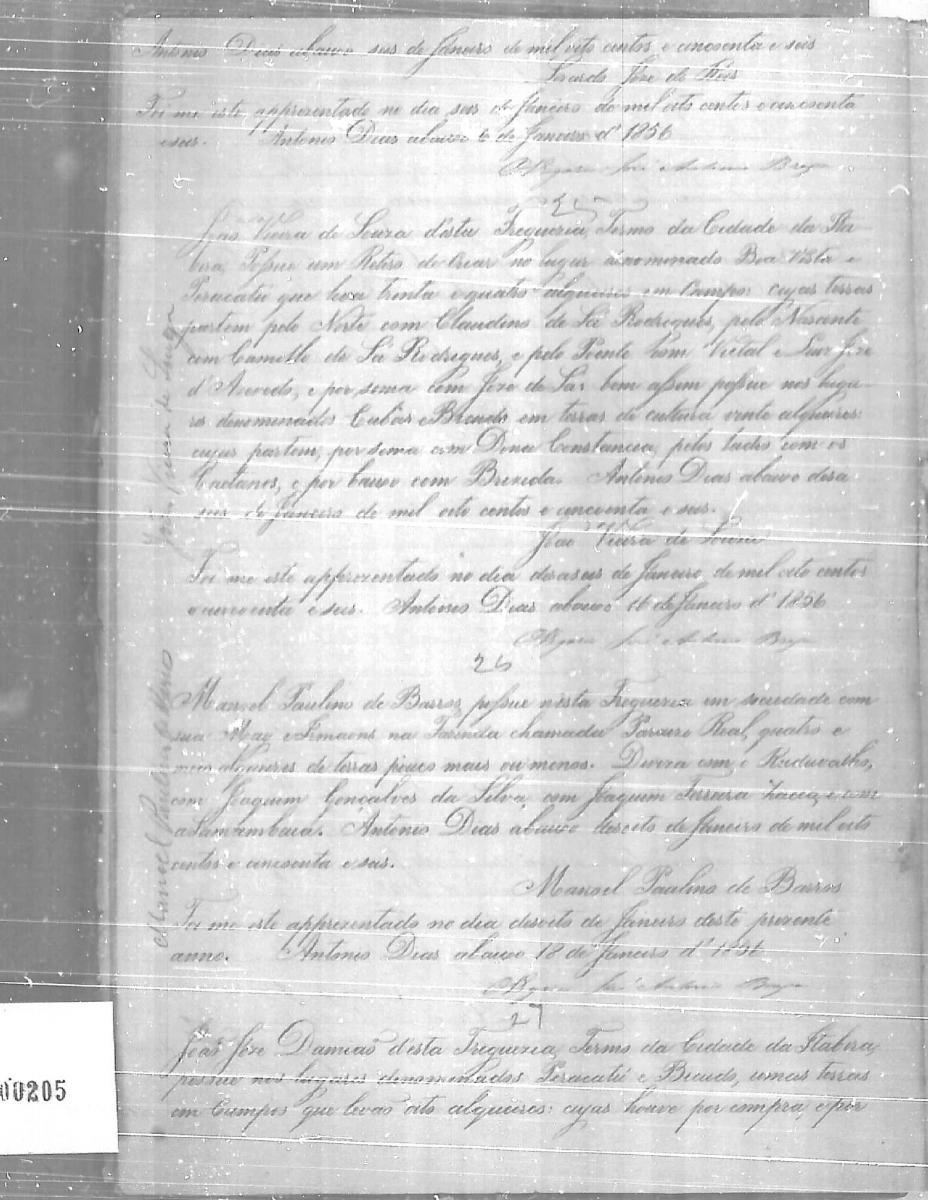 Antonio Dias abaixo seis de Janeiro de mil oito centos e cincoenta e seis
Joze de Reis
Foi me este apprezentado no dia seis de Janeiro de mil oito centos e cincoenta
e seis. Antonio Dias abaixo 6 de Janeiro d'1856
O Vigario José Antonio Braga
João Vieira de Souza d'esta Freguezia, Termo da Cidade da Ita-
bira, Possue um Retiro de Criar no lugar denominado Boa Vista e
Peracatú que leva trinta e quatro alqueires em Campos: cujas terras
partem pelo Norte com Claudino de Sá Rodrigues, pelo Nascente
com Camello de Sá Rodrigues, e pelo Poente com Vidal e Luiz Joze
d'Azevedo, e por sima com Joze de Sá: bem assim possue nos luga-
res denominados Cubas e Breudo em terras de cultura vinte alqueires:
cujas partem, por sima com Dona Constancia, pelos lados com os
Caetanos, e por baixo com Brezida. Antonio Dias abaixo deza
seis de Janeiro de mil oito centos e cincoenta e seis.
João Vieira de Souza
Foi me este apprezentado no dia dezaseis de Janeiro de mil oito centos
e cincoenta e seis. Antonio Dias abaixo 16 de Janeiro d'1856
O Vigario José Antonio Braga
João Vieira de Souza
26
Manoel Paulino de Barros, possue nesta Freguezia em sociedade com
sua May e Irmaons na Fazenda chamada Real, quatro e
meio alqueires de terras pouco mais ou menos. Diviza com o
com Joaquim Gonçalves da Silva, com Joaquim Ferreira e com
a Samambaia. Antonio Dias abaixo desoito de Janeiro de mil oito
centos e cincoenta e seis.
Manoel Paulino de Barros
Foi me este apprezentado no dia desoito de Janeiro deste prezente
anno. Antonio Dias abaixo 18 de Janeiro d'1856
O Vigario José Antonio Braga
Manoel Paulino de Barros
27
João Joze Damiaõ d'esta Freguezia, Termo da Cidade da Itabira,
possue nos lugares denominados Peracatú e Breudo, umas terras
em Campos que levaõ oito alqueires: cujas houve por compra, e por
00205